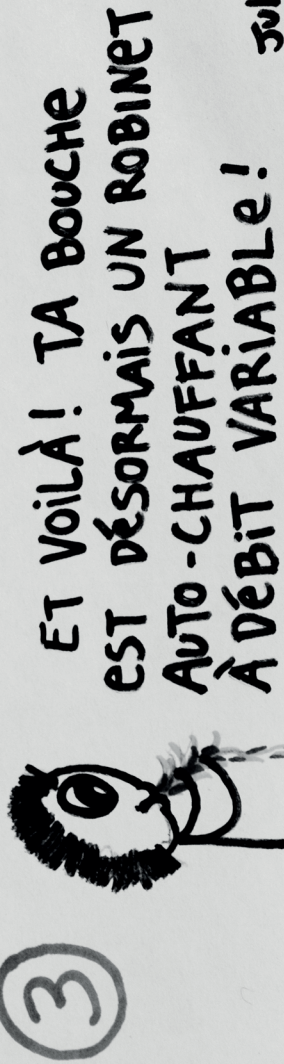 3
ET VOILÀ! TA BOUCHE
EST DÉSORMAIS UN ROBINET
AUTO-CHAUFFANT
À DÉBIT VARIABLE!